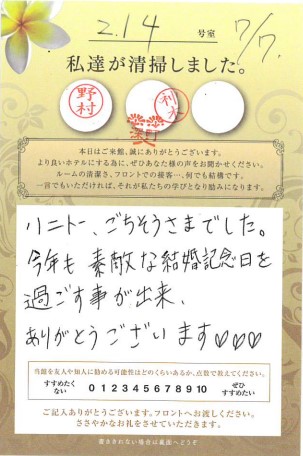 214 号室 7/7
私達が清掃しました。
野村
本日はご来館、誠にありがとうございます。
より良いホテルにする為に、ぜひあなた様の声をお聞かせください。
ルームの清潔さ、フロントでの接客…、何でも結構です。
一言でもいただければ、それが私たちの学びとなり励みになります。
リニトー、ごちそうさまでした。
今年も素敵な結婚記念日を
過ごす事が出来、
ありがとうございます♡♡♡
当館を友人や知人に勧める可能性はどのくらいあるか、点数で教えてください。
すすめたくない 0 1 2 3 4 5 6 7 8 9 10 ぜひすすめたい
ご記入ありがとうございます。フロントへお渡しください。
ささやかなお礼をさせていただきます。
書ききれない場合は裏面へどうぞ